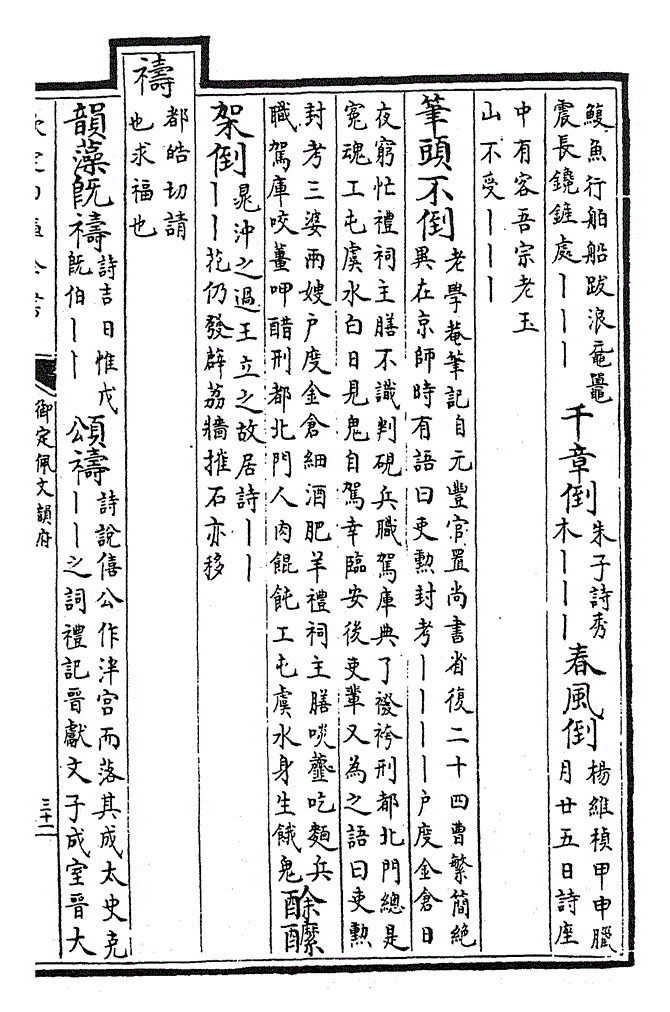 鰒魚行舶船跋浪黿鼉
震長鑱鏟處丨丨丨
千章倒
朱子詩秀
木丨丨丨
春風倒
楊維楨甲申臘
月廿五日詩座
中有客吾宗老玉
山不受丨丨丨
筆頭不倒
老學菴筆記自元豐官置尚書省復二十四曹繁簡絶
異在京師時有語曰吏勲封考丨丨丨丨户度金倉日
夜窮忙禮祠主膳不識判硯兵職駕庫典了襏袴刑都北門總是
寃魂工屯虞水白日見鬼自駕幸臨安後吏輩又為之語曰吏勲
封考三婆兩嫂户度金倉細酒肥羊禮祠主膳啖虀吃麵兵
職駕庫咬薑呷醋刑都北門人肉餛飩工屯虞水身生餓鬼
酴醾
架倒
晁沖之過王立之故居詩丨丨
丨丨花仍發薜荔牆摧石亦移
禱
都皓切請
也求福也
韻藻既禱
詩吉日惟戊
既伯丨丨
頌禱
詩說僖公作泮宫而落其成太史克
丨丨之詞禮記晉獻文子成室晉大
御定佩文韻府
三十二